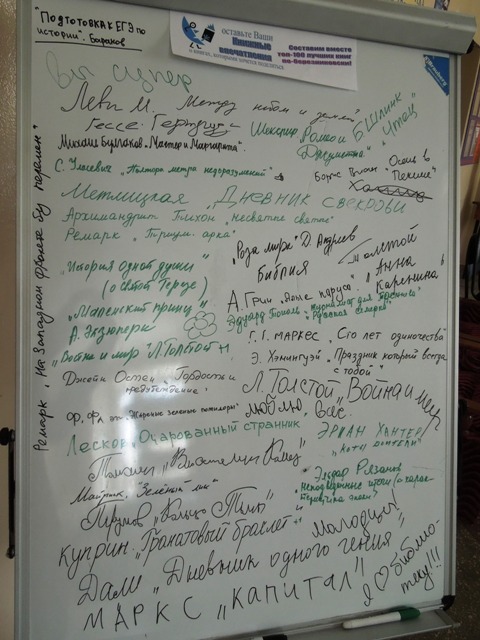 "Подготовка к ЕГЭ по
истории". Баранов
оставьте Ваши
Книжные
впечатления
Составим вместе
топ-100 лучших книг
по-березниковски!
Вы супер
Леви М. Между небом и землёй
Гессе. Гертруда
Шекспир "Ромео и
Джульетта"
Б. Шлинк "Чтец"
Михаил Булгаков "Мастер и Маргарита"
С. Улысевич "Полтора метра недоразумений"
Борис Виан "Осень в
Пекине"
Метлицкая "Дневник свекрови
Архимандрит Тихон "Несвятые святые"
Ремарк "Триум. арка"
"Роза мира" Д. Андреев
Библия
Толстой
"Анна
Каренина"
"История одной души"
(о святой Терезе)
"Маленький принц"
А. Экзюпери
А. Грин "Алые паруса"
Эдуард Тополь "Журналист для Брежнева"
"Русская семёрка"
"Война и мир" Л. Толстой
Г. Г. Маркес "Сто лет одиночества"
Э. Хэмингуэй "Праздник который всегда
с тобой"
Джейн Остен "Гордость и
предубеждение"
Л. Толстой "Война и мир"
Фр. Флэгг "Жареные зеленые помидоры"
люблю Вас.
Лесков "Очарованный странник
Эриан Хантер
"Коты воители"
Толкиен "Властелин Колец"
Эльдар Рязанов
Неподведенные итоги
"Зелёный
Трумов "Кольцо Тьмы"
Куприн "Гранатовый браслет"
Молодцы!
Дали "Дневник одного гения"
Маркс "Капитал"
Я ♡ библио-
теку!!!
Ремарк "На Западном фронте без перемен"